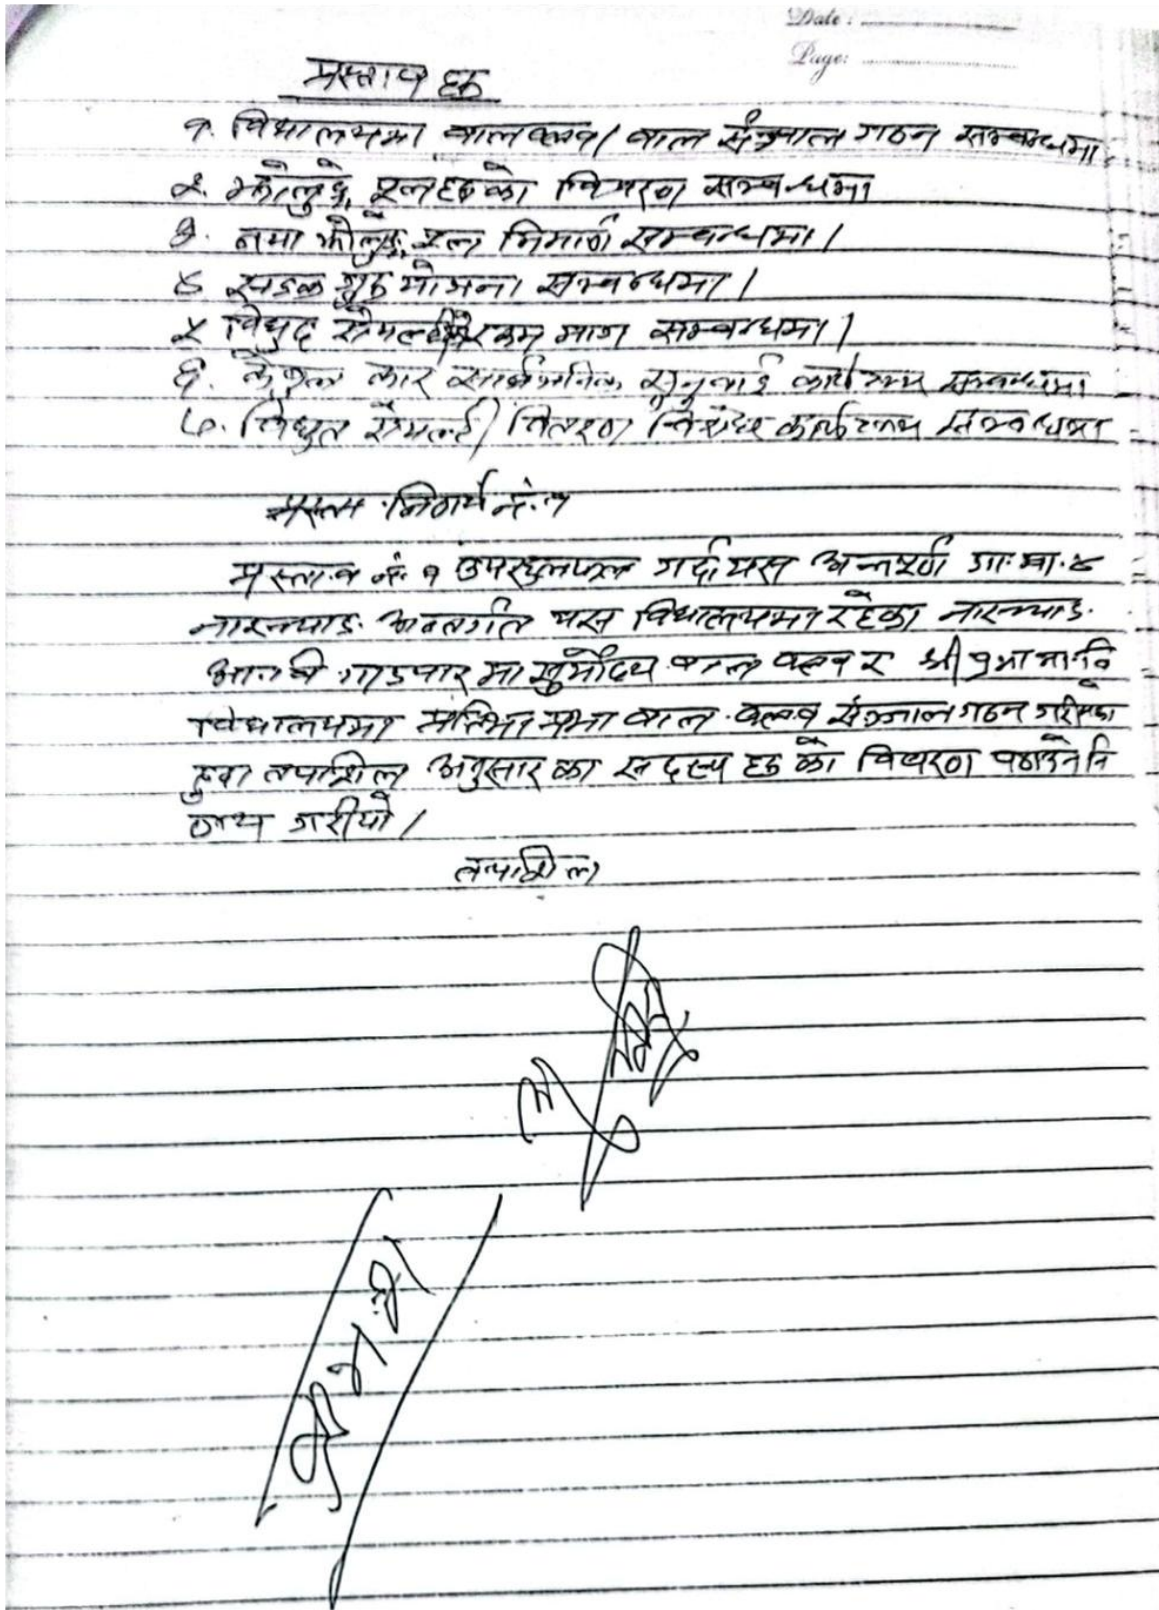 Date :
Page:
प्रस्ताव हरु
१. विधालयमा बालक्लव/ बाल संञ्जाल गठन सम्बन्धमा
२. झोलुङ्गे पुलहरुको विवरण सम्बन्धमा
३. नया झोलुङ्गे पुल निमार्ण सम्बन्धमा।
४ सडक गुरु योजना सम्बन्धमा।
५ विधुद रकम माग सम्बन्धमा।
६. सार्वजनिक सुनुवाई कार्यक्रम सम्बन्धमा
७. विधुत वितरण कार्यक्रम सम्बन्धमा
निर्णय नं. १
प्रस्ताव नं. १ उपरछलफल गर्दा यस अन्नपूर्ण गा.पा.४
नारच्याङ अन्तर्गत यस विधालयमा रहेका नारच्याङ
आ.वि गाउपारमा सुर्योदय बाल क्लव र श्री मा.वि
विधालयमा बाल क्लव संञ्जाल गठन गरीएका
हुदा तपाशिल अनुसार का सदस्य हरु को विवरण पठाउने नि
णय गरीयो।
तपाशिल